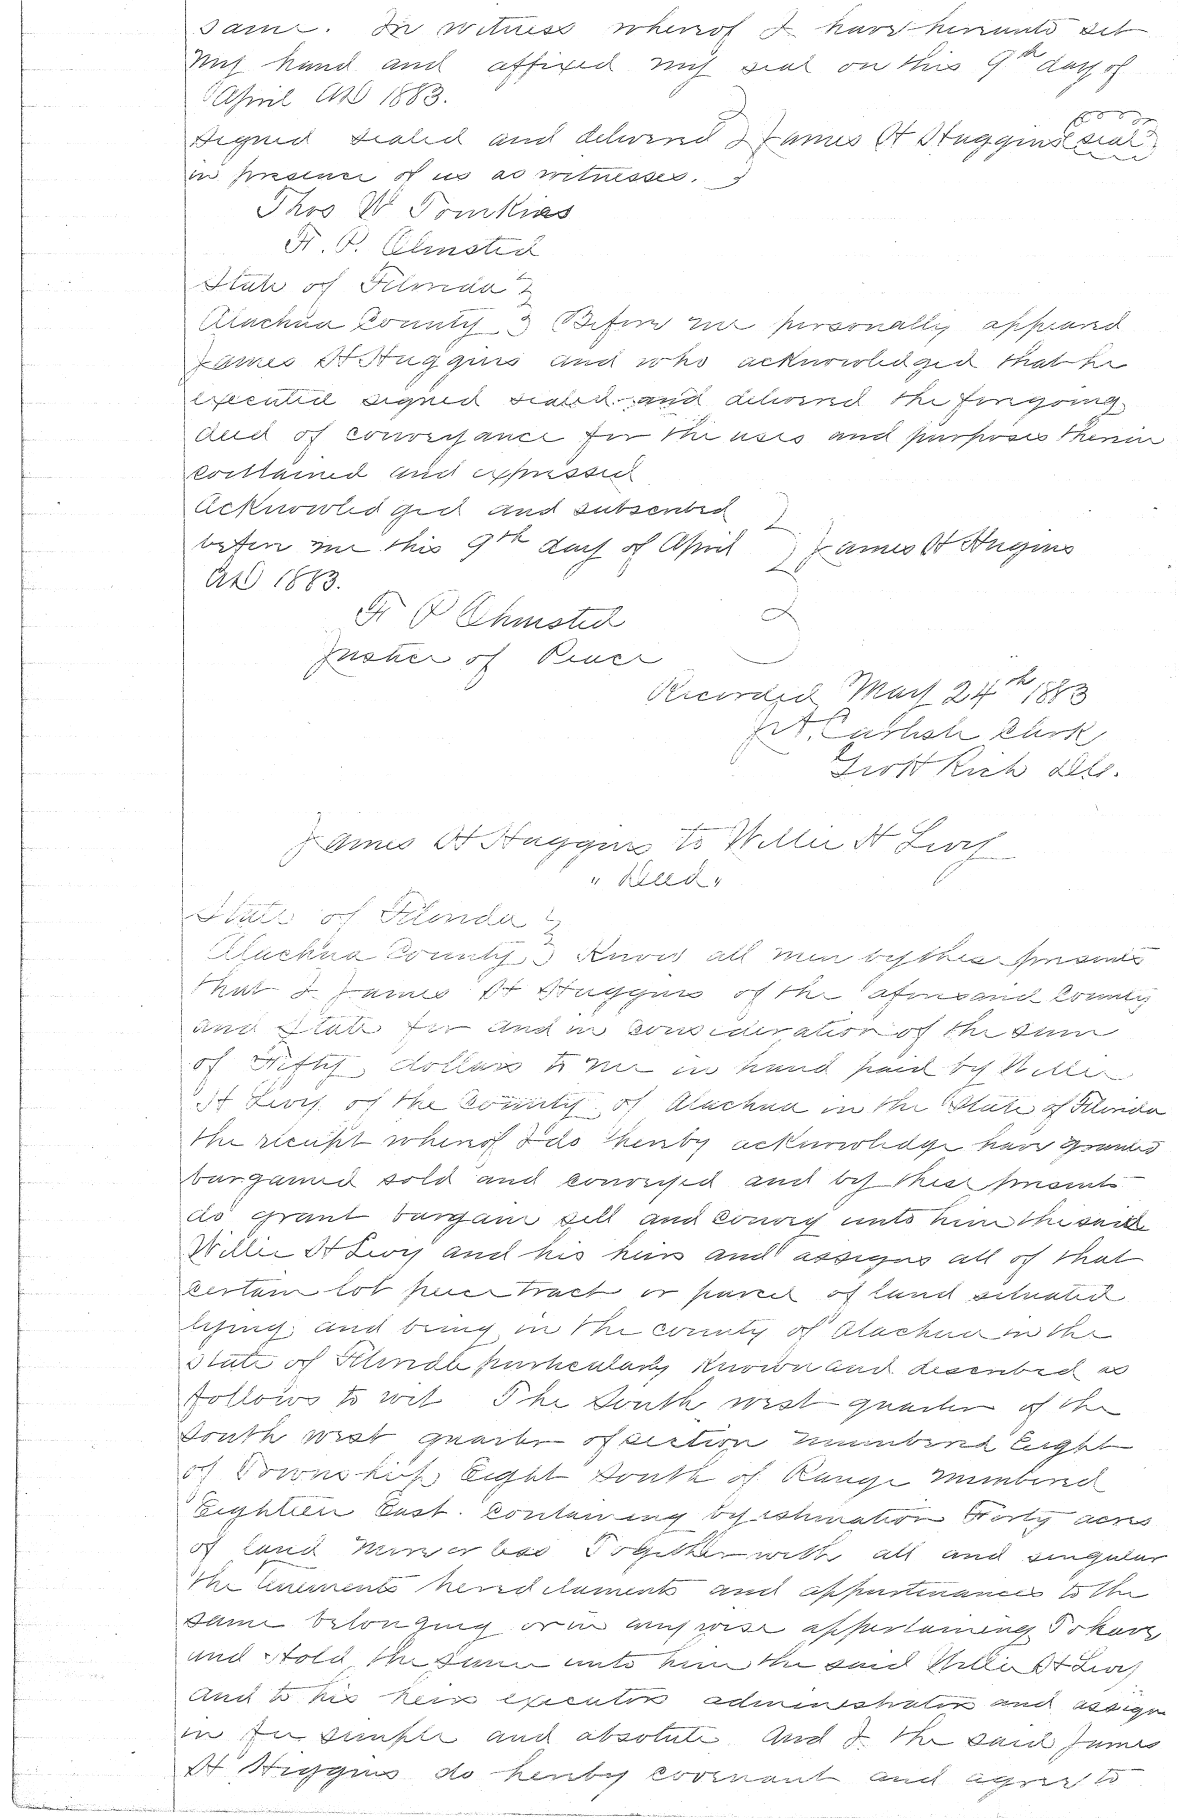 same. In witness whereof I have hereunto set
my hand and affixed my seal on this 9th day of
April AD 1883.
Signed sealed and delivered } James H Huggins (seal)
in presence of us as witnesses. }
Thos W Tomkies
F. P. Olmsted
State of Florida }
Alachua County } Before me personally appeared
James H Huggins and who acknowledged that he
executed signed sealed and delivered the foregoing
deed of conveyance for the uses and purposes therein
contained and expressed
Acknowledged and subscribed }
before me this 9th day of April } James H Hugins
AD 1883.
F P Olmsted }
Justice of Peace
Recorded May 24th 1883
J A. Carlisle Clerk
Geo H Rich D.C.
James H Huggins to Willie H Levy
" Deed "
State of Florida }
Alachua County } Know all men by these presents
that I James H Huggins of the aforesaid County
and State for and in consideration of the sum
of Fifty dollars to me in hand paid by Willie
H Levy of the County of Alachua in the State of Florida
the receipt whereof I do hereby acknowledge have granted
bargained sold and conveyed and by these presents
do grant bargain sell and convey unto him the said
Willie H Levy and his heirs and assigns all of that
certain lot piece tract or parcel of land situated
lying and being in the county of Alachua in the
State of Florida particularly known and described as
follows to wit The South west quarter of the
South west quarter of section numbered Eight
of Township Eight South of Range numbered
Eighteen East. Containing by estimation Forty acres
of land more or less Together with all and singular
the tenements hereditaments and appurtenances to the
same belonging or in any wise appertaining To have
and Hold the same unto him the said Willie H Levy
and to his heirs executors administrators and assigns
in fee simple and absolute And I the said James
H Higgins do hereby covenant and agree to